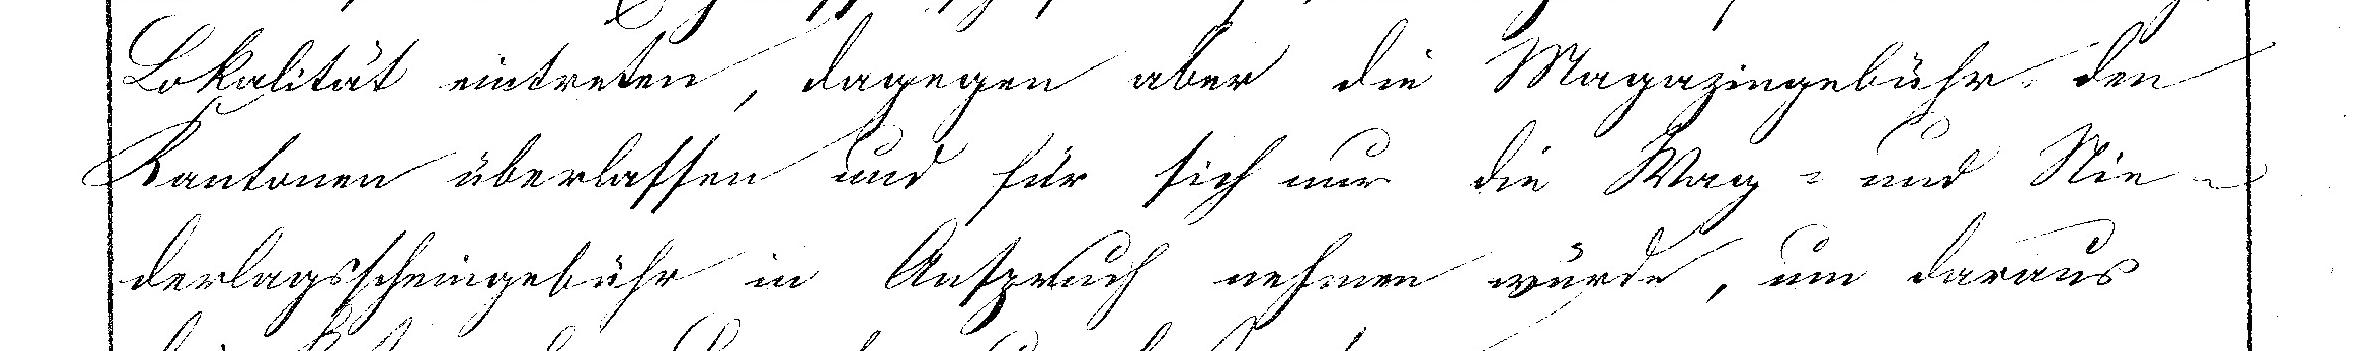 Lokalität eintreten, dagegen aber die Magazingebühr den
Kantonen überlassen und für sich nur die Wag- und Nie-
derlagsscheingebühr in Anspruch nehmen würde, um daraus